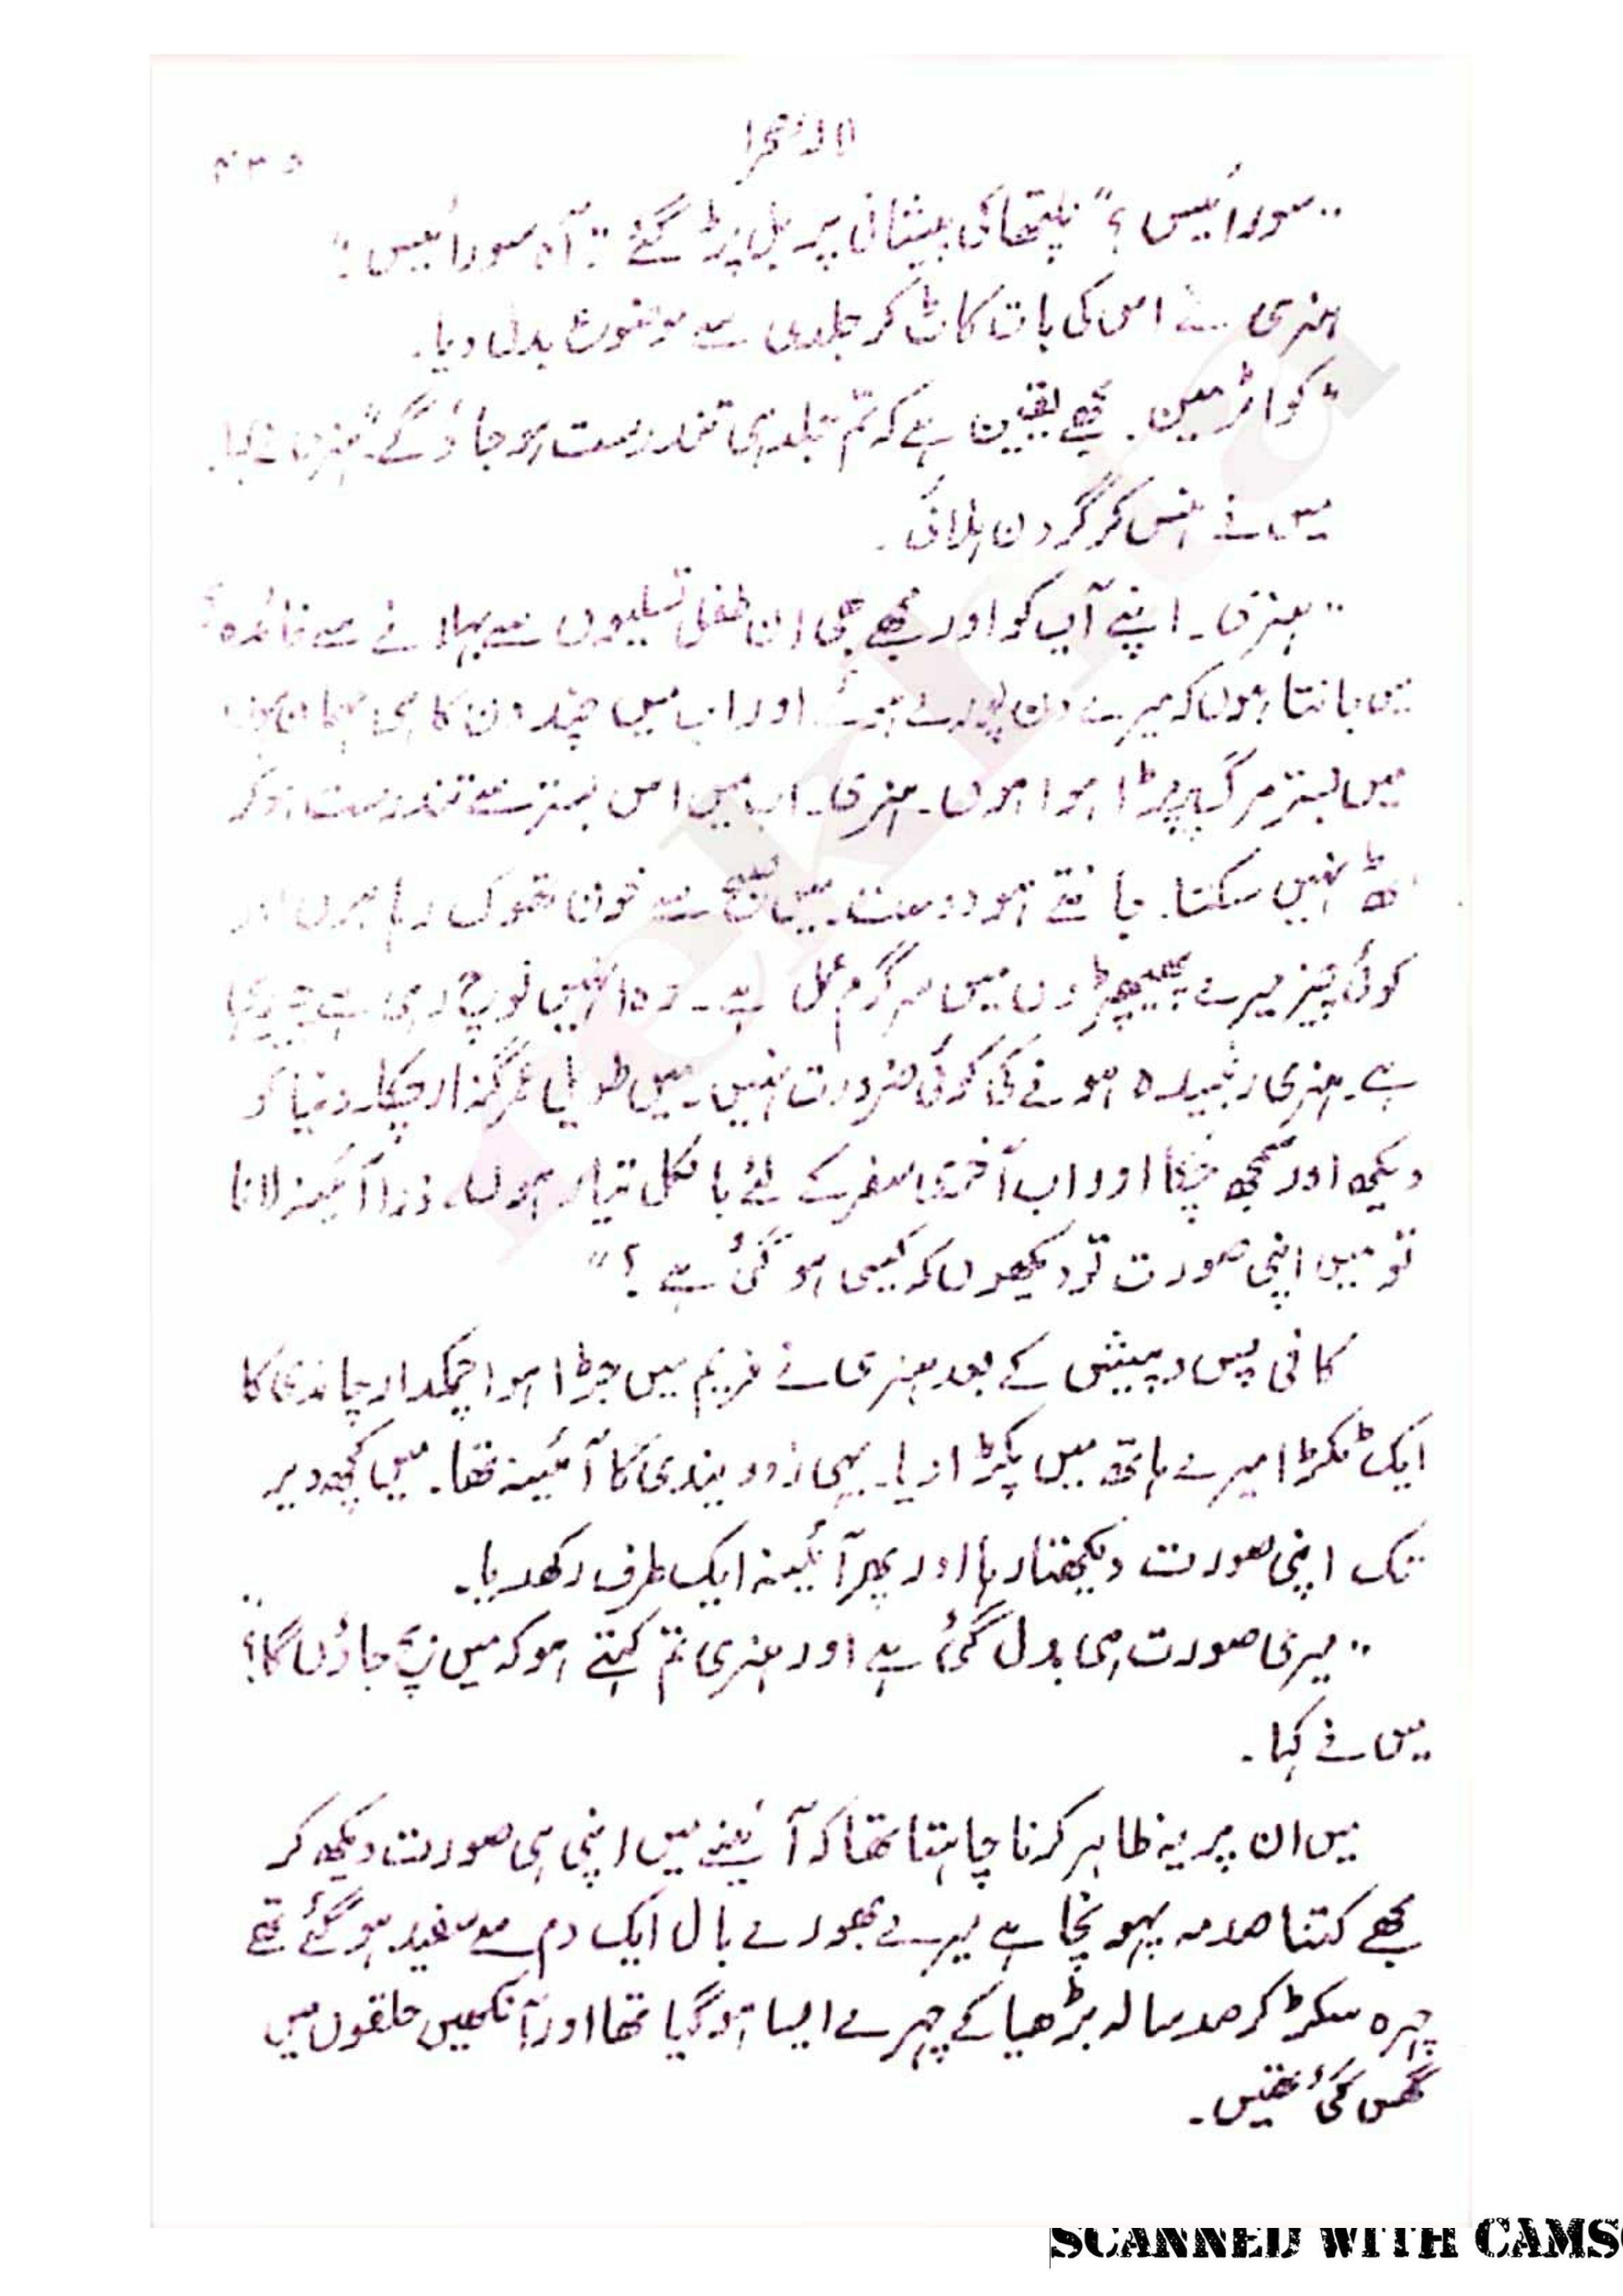 ۴۳۵
"سورائیس؟" نلیتھا کی پیشانی پر بل پڑ گئے "آہ سورائیس!"
ہنری نے اس کی بات کاٹ کر جلدی سے موضوع بدل دیا.
"کواٹرمین. مجھے یقین ہے کہ تم جلد ہی تندرست ہو جاؤ گے" ہنری نے کہا.
میں نے ہنس کر گردن ہلائی.
"ہنری۔ اپنے آپ کو اور مجھے بھی ان طفل تسلیوں سے بہلانے سے فائدہ؟
میں جانتا ہوں کہ میرے دن پورے ہو گئے اور اب میں چند دن کا ہی مہمان ہوں
میں بستر مرگ پر پڑا ہوا ہوں۔ ہنری۔ اب میں اس بستر سے تندرست ہو کر
اٹھ نہیں سکتا. جانتے ہو دوست۔ میں صبح سے خون تھوک رہا ہوں اور
کوئی چیز میرے پھیپھڑوں میں سرگرم عمل ہے۔ وہ انہیں نوچ رہی ہے چیر رہی
ہے۔ ہنری رنجیدہ ہونے کی کوئی ضرورت نہیں۔ میں طویل عمر گذار چکا۔ دنیا کو
دیکھ اور سمجھ چکا اور اب آخری سفر کے لئے بالکل تیار ہوں۔ ذرا آئینہ لانا
تو میں اپنی صورت تو دیکھوں کہ کیسی ہو گئی ہے؟"
کافی پس و پیش کے بعد ہنری نے فریم میں جڑا ہوا چمکدار چاندی کا
ایک ٹکڑا میرے ہاتھ میں پکڑا دیا۔ یہی زووینڈی کا آئینہ تھا. میں کچھ دیر
تک اپنی صورت دیکھتا رہا اور پھر آئینہ ایک طرف رکھ دیا۔
"میری صورت ہی بدل گئی ہے اور ہنری تم کہتے ہو کہ میں بچ جاؤں گا؟"
میں نے کہا.
میں ان پر یہ ظاہر کرنا چاہتا تھا کہ آئینے میں اپنی ہی صورت دیکھ کر
مجھے کتنا صدمہ پہونچا ہے میرے بھورے بال ایک دم سے سفید ہو گئے تھے
چہرہ سکڑ کر صد سالہ بڑھیا کے چہرے ایسا ہو گیا تھا اور آنکھیں حلقوں میں
گھس گئی تھیں.
rekhta
SCANNED WITH CAMS